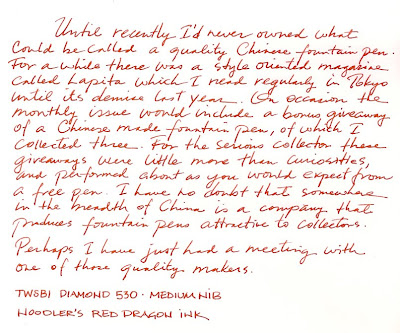 Until recently I'd never owned what
could be called a quality Chinese fountain pen.
For a while there was a style oriented magazine
called Lapita which I read regularly in Tokyo
until its demise last year. On occasion the
monthly issue would include a bonus giveaway
of a Chinese made fountain pen, of which I
collected three. For the serious collector these
giveaways were little more than curiosities,
and performed about as you would expect from
a free pen. I have no doubt that somewhere
in the breadth of China is a company that
produces fountain pens attractive to collectors.
Perhaps I have just had a meeting with
one of those quality makers.
TWSBI DIAMOND 530 · MEDIUM NIB
NOODLER'S RED DRAGON INK